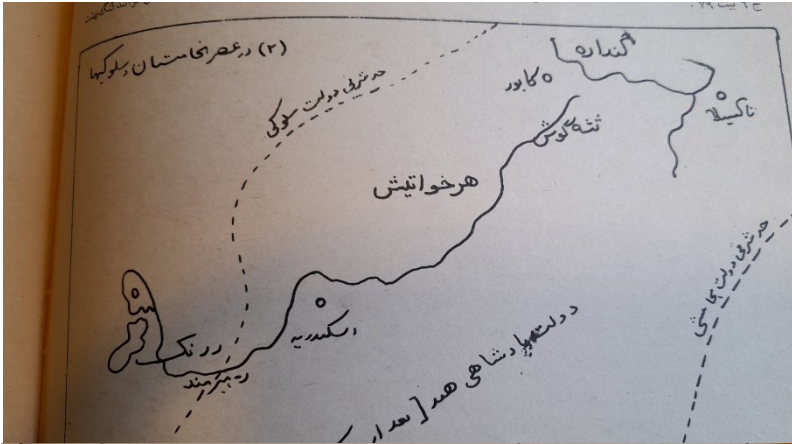 (۲) در عصر هخامنشیان و سلوکیها
حد شرقی دولت سلوکی
گنداره
کابور
تاکسیلا
ثته گوش
هرخواتیش
حد شرقی دولت هخامنشی
اسکندریه
درنک
هیرمند
دولت پادشاهی هند [بعد از